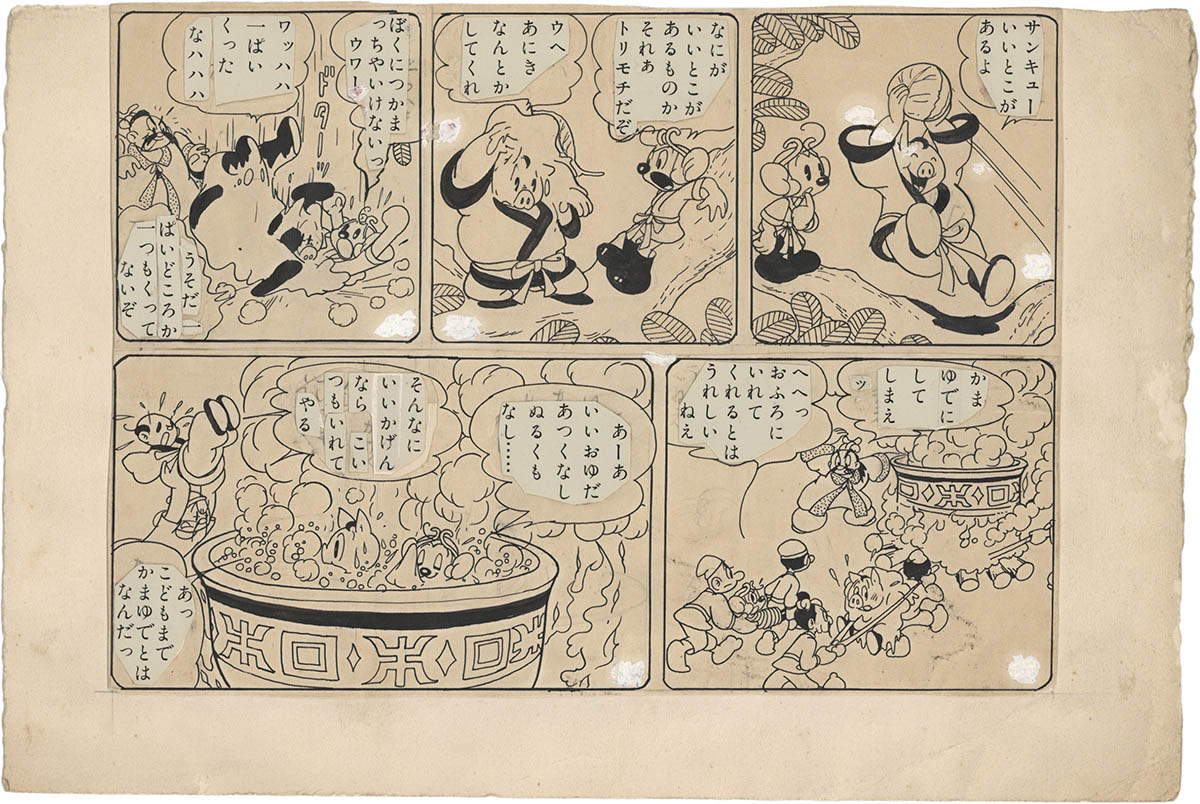 サンキュー
いいとこが
あるよ
なにが
いいとこが
あるものか
それあ
トリモチだぞ
ウヘ
あにき
なんとか
してくれ
ぼくにつかま
っちやいけないっ
ウワーッ
ドターッ
ワッハハ
一ぱい
くった
なハハハ
うそだ 一
ぱいどころか
一つもくって
ないぞ
かま
ゆでに
して
しまえ
ッ
へへっ
おふろに
いれて
くれるとは
うれしい
ねえ
あーあ
いいおゆだ
あつくなし
ぬるくも
なし……
そんなに
いいかげん
なら こい
つもいれて
やる
あっ
こどもまで
かまゆでとは
なんだっ